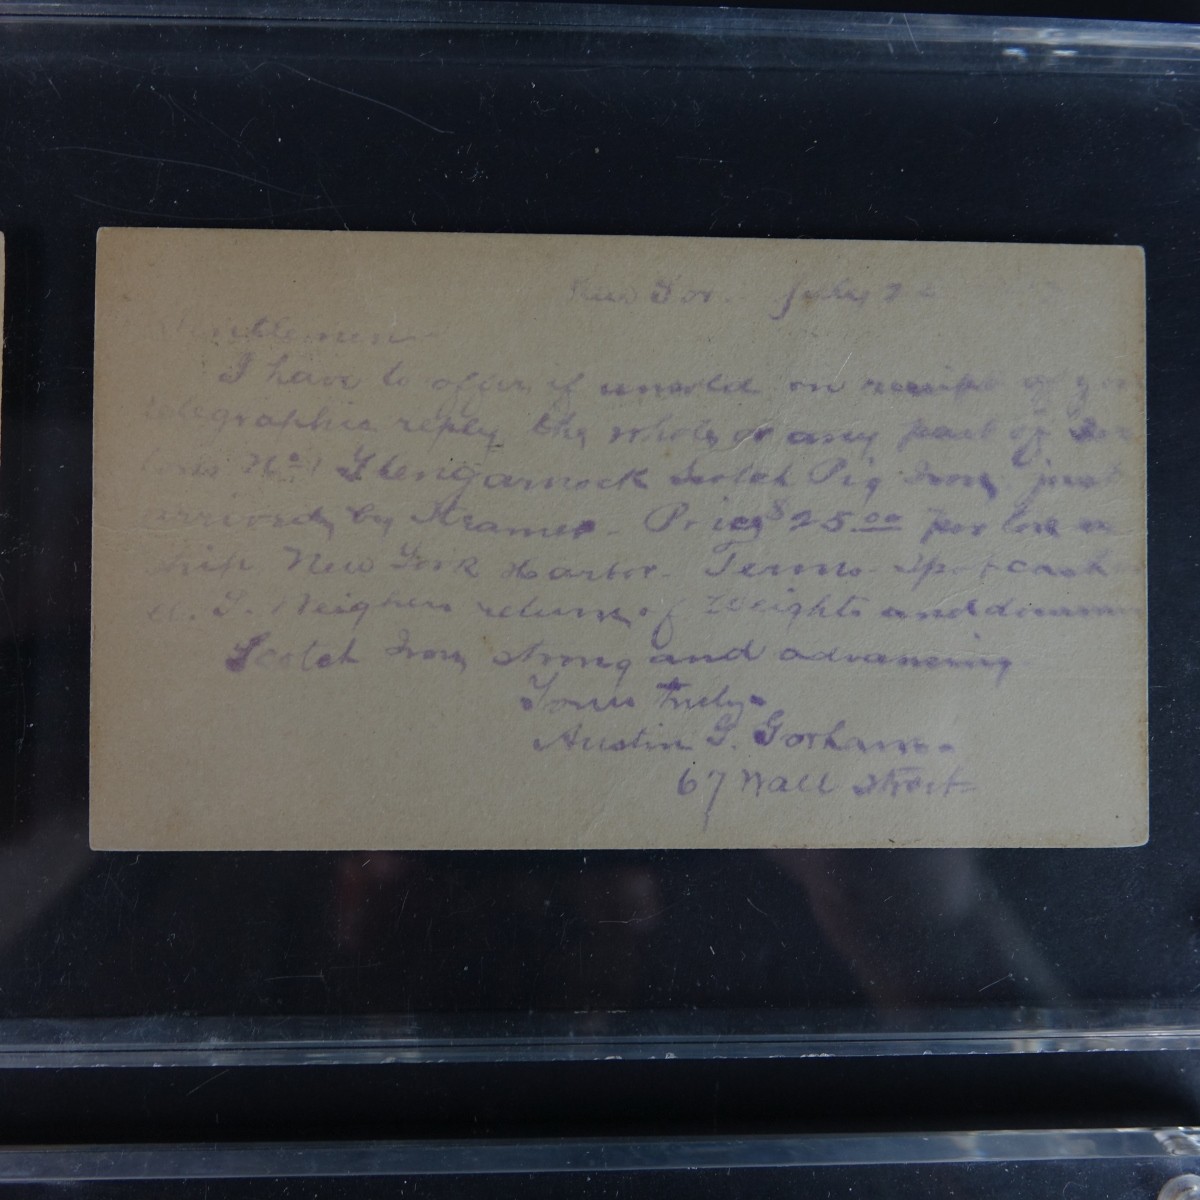 New Yor. July 2
Gentlemen
I have to offer if unsold on receipt of
telegraphic reply the whole or any part of
tons No 1 Glengarnock Scotch Pig Iron just
arrived by Steamer - Price $25.00 per ton
ship New York Harbor - Terms - Spot cash
U. S. Weighers return of Weights and
Scotch Iron strong and advancing
Yours truly
Austin G. Gorham
67 Wall Street